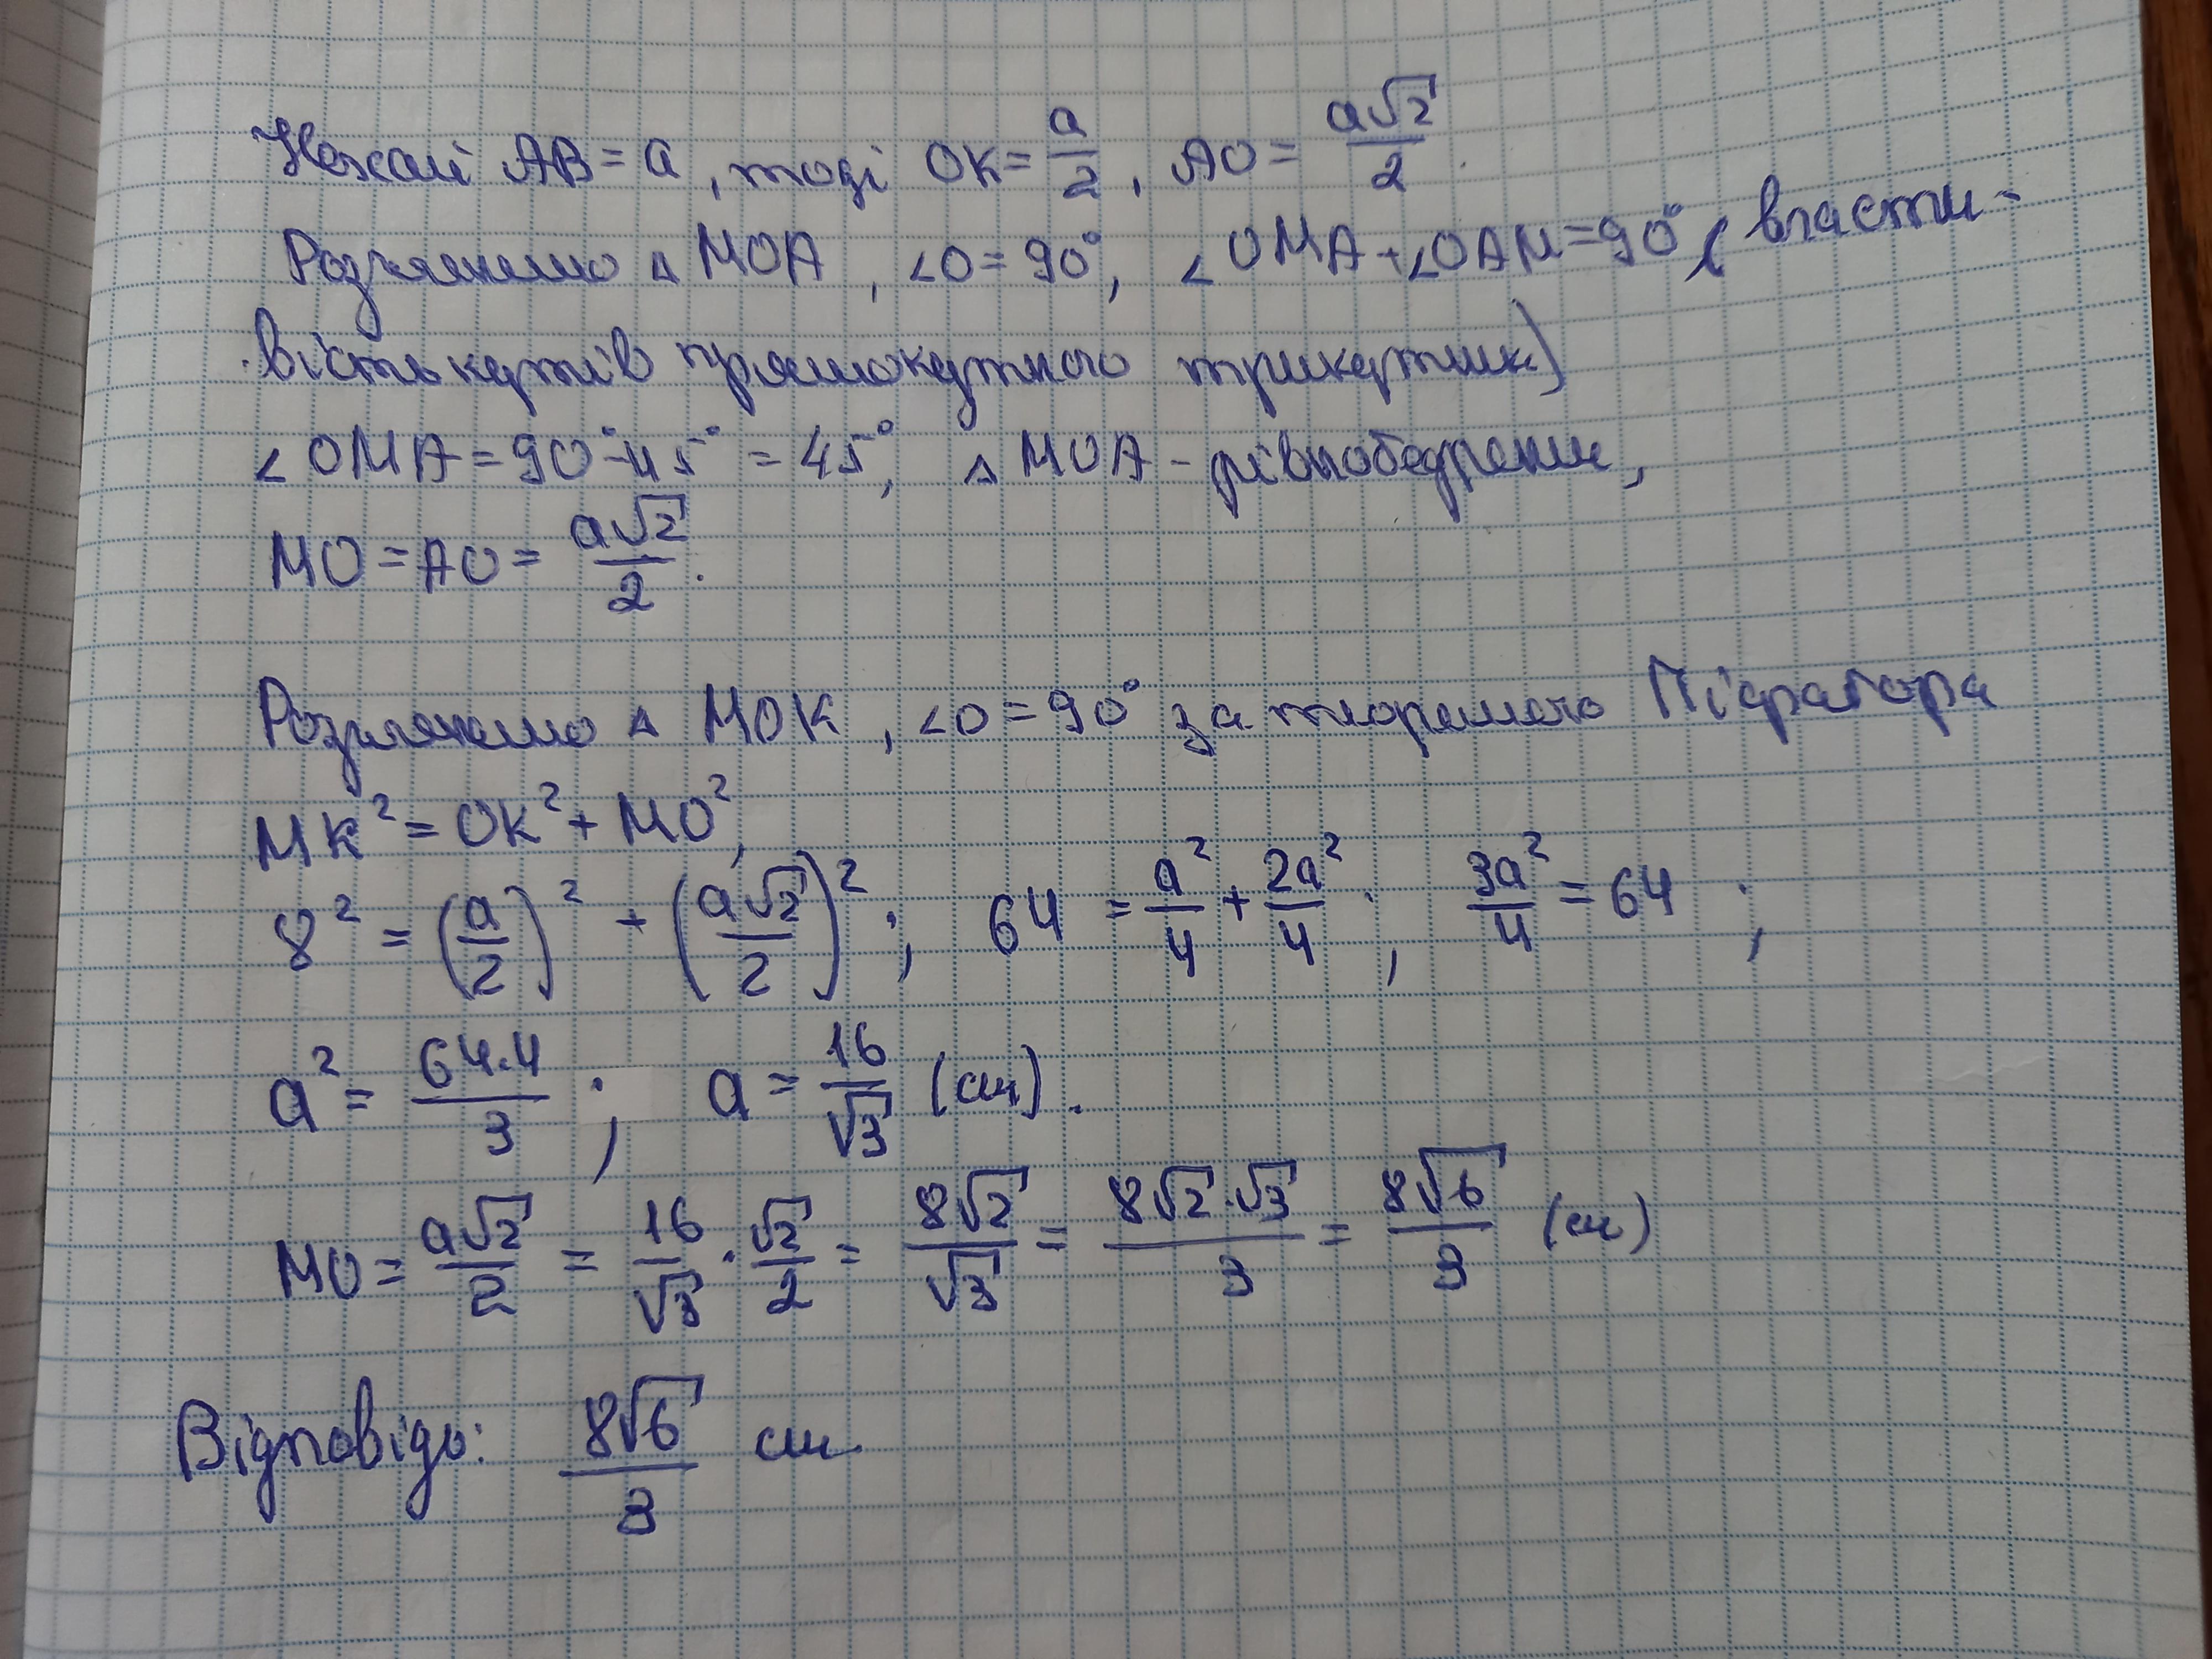 Нехай AB = a, тоді OK = a/2, AO = a√2/2.
Розглянемо △ MOA, ∠O = 90°, ∠OMA + ∠OAM = 90° (власти-
вість кутів прямокутного трикутник)
∠OMA = 90° - 45° = 45°, △ MOA - рівнобедрений,
MO = AO = a√2/2.
Розглянемо △ MOK, ∠O = 90° за теоремою Піфагора
MK² = OK² + MO²,
8² = (a/2)² + (a√2/2)²; 64 = a²/4 + 2a²/4; 3a²/4 = 64;
a² = 64·4/3; a = 16/√3 (см).
MO = a√2/2 = 16/√3 · √2/2 = 8√2/√3 = 8√2·√3/3 = 8√6/3 (см)
Відповідь: 8√6/3 см